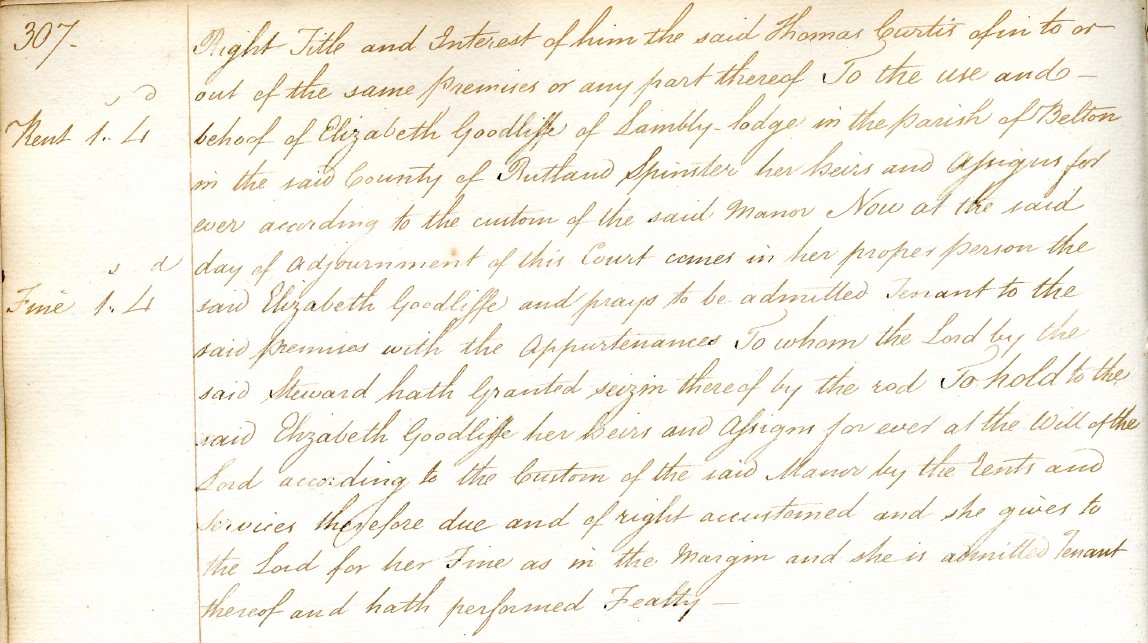 307.
Right Title and Interest of him the said Thomas Curtis of in to or
out of the same premises or any part thereof To the use and
s d
Rent 1.. 4
behoof of Elizabeth Goodliffe of Lambly-lodge in the parish of Belton
in the said County of Rutland Spinster her heirs and Assigns for
ever according to the custom of the said Manor Now at the said
day of Adjournment of this Court comes in her proper person the
s d
Fine 1.. 4
said Elizabeth Goodliffe and prays to be admitted Tenant to the
said premises with the Appurtenances To whom the Lord by the
said Steward hath Granted seizin thereof by the rod To hold to the
said Elizabeth Goodliffe her Heirs and Assigns for ever at the Will of the
Lord according to the Custom of the said Manor by the Rents and
Services therefore due and of right accustomed and she gives to
the Lord for her Fine as in the Margin and she is admitted Tenant
thereof and hath performed Fealty —